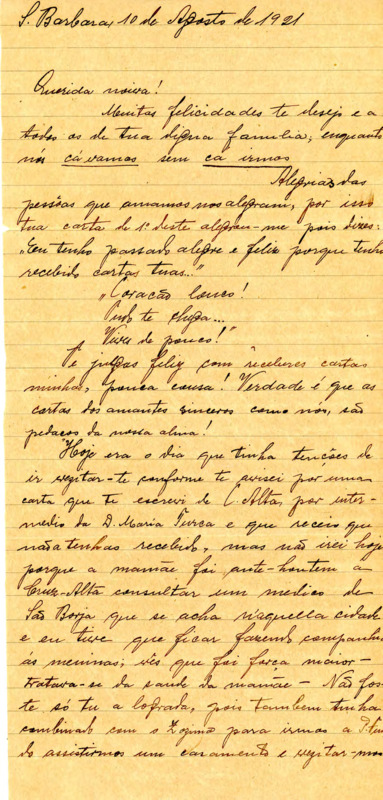 S. Barbara, 10 de Agosto de 1921
Querida noiva!
Muitas felicidades te desejo e a
todos os de tua digna familia, enquanto
nos cá vamos sem
Alegrias das
pessôas que amamos nos alegram, por isso
tua carta de 1º deste alegrou-me pois dizes:
"Eu tenho passado alegre e feliz porque tenho
recebido cartas tuas..."
"Coração louco!
Tudo te chega...
Vives de pouco!"
E julgas feliz com receberes cartas
minhas, pouca cousa! Verdade é que as
cartas dos amantes sinceros como nós, são
pedaços da nossa alma!
Hoje era o dia que tinha tenções de
ir vezitar-te conforme te avisei por uma
carta que te escrevi de C. Alta, por inter-
medio da D. Maria Turca e que receio que
não a tenhas recebido, mas não irei hoje
porque a mamãe foi ante-hontem a
Cruz-Alta consultar um medico de
São Borja que se acha n'aquella cidade
e eu tive que ficar fazendo companhia
ás meninas; vês que foi força maior -
tratava-se da saude da mamãe - Não fos-
te só tu a lograda, pois tambem tinha
combinado com o Zozimo para irmos a
do assistirmos um casamento e vezitar-mos